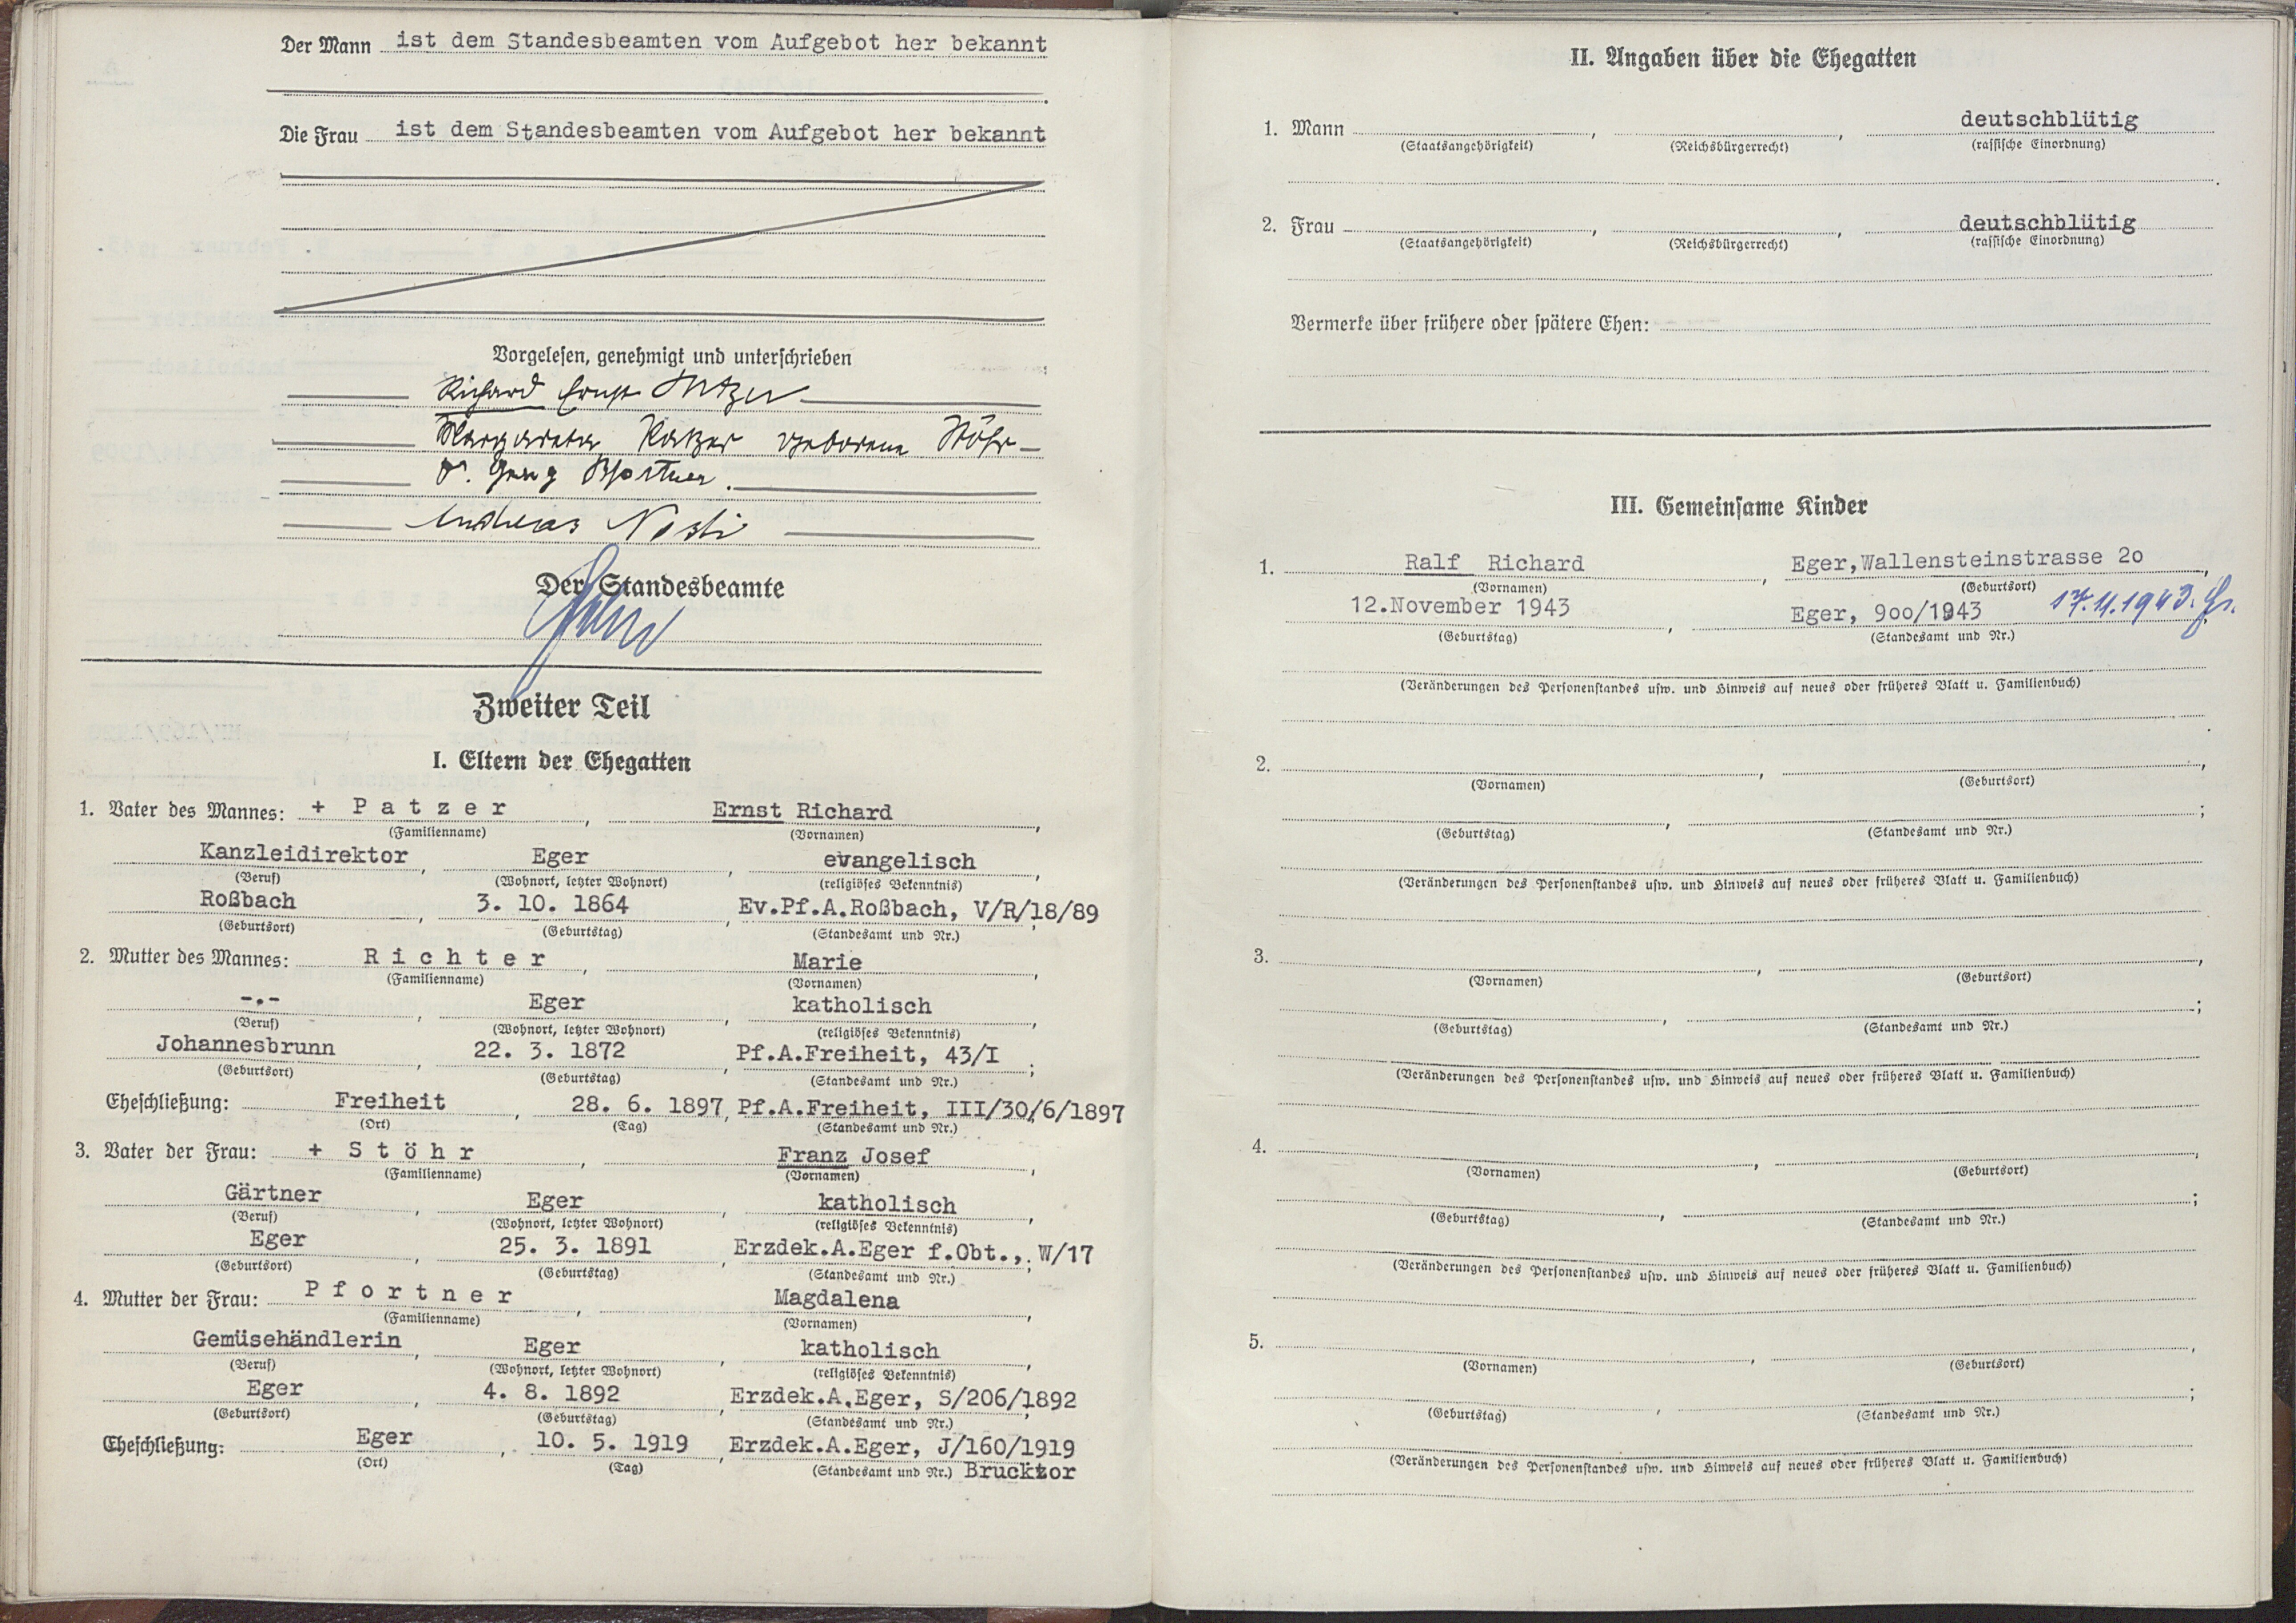 Der Mann ist dem Standesbeamten vom Aufgebot her bekannt
Die Frau ist dem Standesbeamten vom Aufgebot her bekannt
Vorgelesen, genehmigt und unterschrieben
Richard Ernst Patzer
Margareta Patzer geborene Stöhr
Georg Pfortner.
Andreas
Der Standesbeamte
Zweiter Teil
I. Eltern der Ehegatten
1. Vater des Mannes: + P a t z e r , Ernst Richard ,
(Familienname) (Vornamen)
Kanzleidirektor , Eger , evangelisch ,
(Beruf) (Wohnort, letzter Wohnort) (religiöses Bekenntnis)
Roßbach , 3. 10. 1864 , Ev.Pf.A.Roßbach, V/R/18/89 ;
(Geburtsort) (Geburtstag) (Standesamt und Nr.)
2. Mutter des Mannes: R i c h t e r , Marie ,
(Familienname) (Vornamen)
-.- , Eger , katholisch ,
(Beruf) (Wohnort, letzter Wohnort) (religiöses Bekenntnis)
Johannesbrunn , 22. 3. 1872 , Pf.A.Freiheit, 43/I ;
(Geburtsort) (Geburtstag) (Standesamt und Nr.)
Eheschließung: Freiheit , 28. 6. 1897, Pf.A.Freiheit, III/30/6/1897
(Ort) (Tag) (Standesamt und Nr.)
3. Vater der Frau: + S t ö h r , Franz Josef ,
(Familienname) (Vornamen)
Gärtner , Eger , katholisch ,
(Beruf) (Wohnort, letzter Wohnort) (religiöses Bekenntnis)
Eger , 25. 3. 1891 , Erzdek.A.Eger f.Obt., W/17
(Geburtsort) (Geburtstag) (Standesamt und Nr.)
4. Mutter der Frau: P f o r t n e r , Magdalena ,
(Familienname) (Vornamen)
Gemüsehändlerin , Eger , katholisch ,
(Beruf) (Wohnort, letzter Wohnort) (religiöses Bekenntnis)
Eger , 4. 8. 1892 , Erzdek.A.Eger, S/206/1892
(Geburtsort) (Geburtstag) (Standesamt und Nr.)
Eheschließung: Eger , 10. 5. 1919 , Erzdek.A.Eger, J/160/1919
(Ort) (Tag) (Standesamt und Nr.) Brucktor
II. Angaben über die Ehegatten
1. Mann , , deutschblütig
(Staatsangehörigkeit) (Reichsbürgerrecht) (rassische Einordnung)
.
2. Frau , , deutschblütig
(Staatsangehörigkeit) (Reichsbürgerrecht) (rassische Einordnung)
Vermerke über frühere oder spätere Ehen:
III. Gemeinsame Kinder
1. Ralf Richard , Eger,Wallensteinstrasse 2o ,
(Vornamen) (Geburtsort)
12.November 1943 , Eger, 9oo/1943 17.11.1943.
(Geburtstag) (Standesamt und Nr.)
(Veränderungen des Personenstandes usw. und Hinweis auf neues oder früheres Blatt u. Familienbuch)
2. , ,
(Vornamen) (Geburtsort)
, ;
(Geburtstag) (Standesamt und Nr.)
(Veränderungen des Personenstandes usw. und Hinweis auf neues oder früheres Blatt u. Familienbuch)
3. , ,
(Vornamen) (Geburtsort)
, ;
(Geburtstag) (Standesamt und Nr.)
(Veränderungen des Personenstandes usw. und Hinweis auf neues oder früheres Blatt u. Familienbuch)
4. , ,
(Vornamen) (Geburtsort)
, ;
(Geburtstag) (Standesamt und Nr.)
(Veränderungen des Personenstandes usw. und Hinweis auf neues oder früheres Blatt u. Familienbuch)
5. , ,
(Vornamen) (Geburtsort)
, ;
(Geburtstag) (Standesamt und Nr.)
(Veränderungen des Personenstandes usw. und Hinweis auf neues oder früheres Blatt u. Familienbuch)